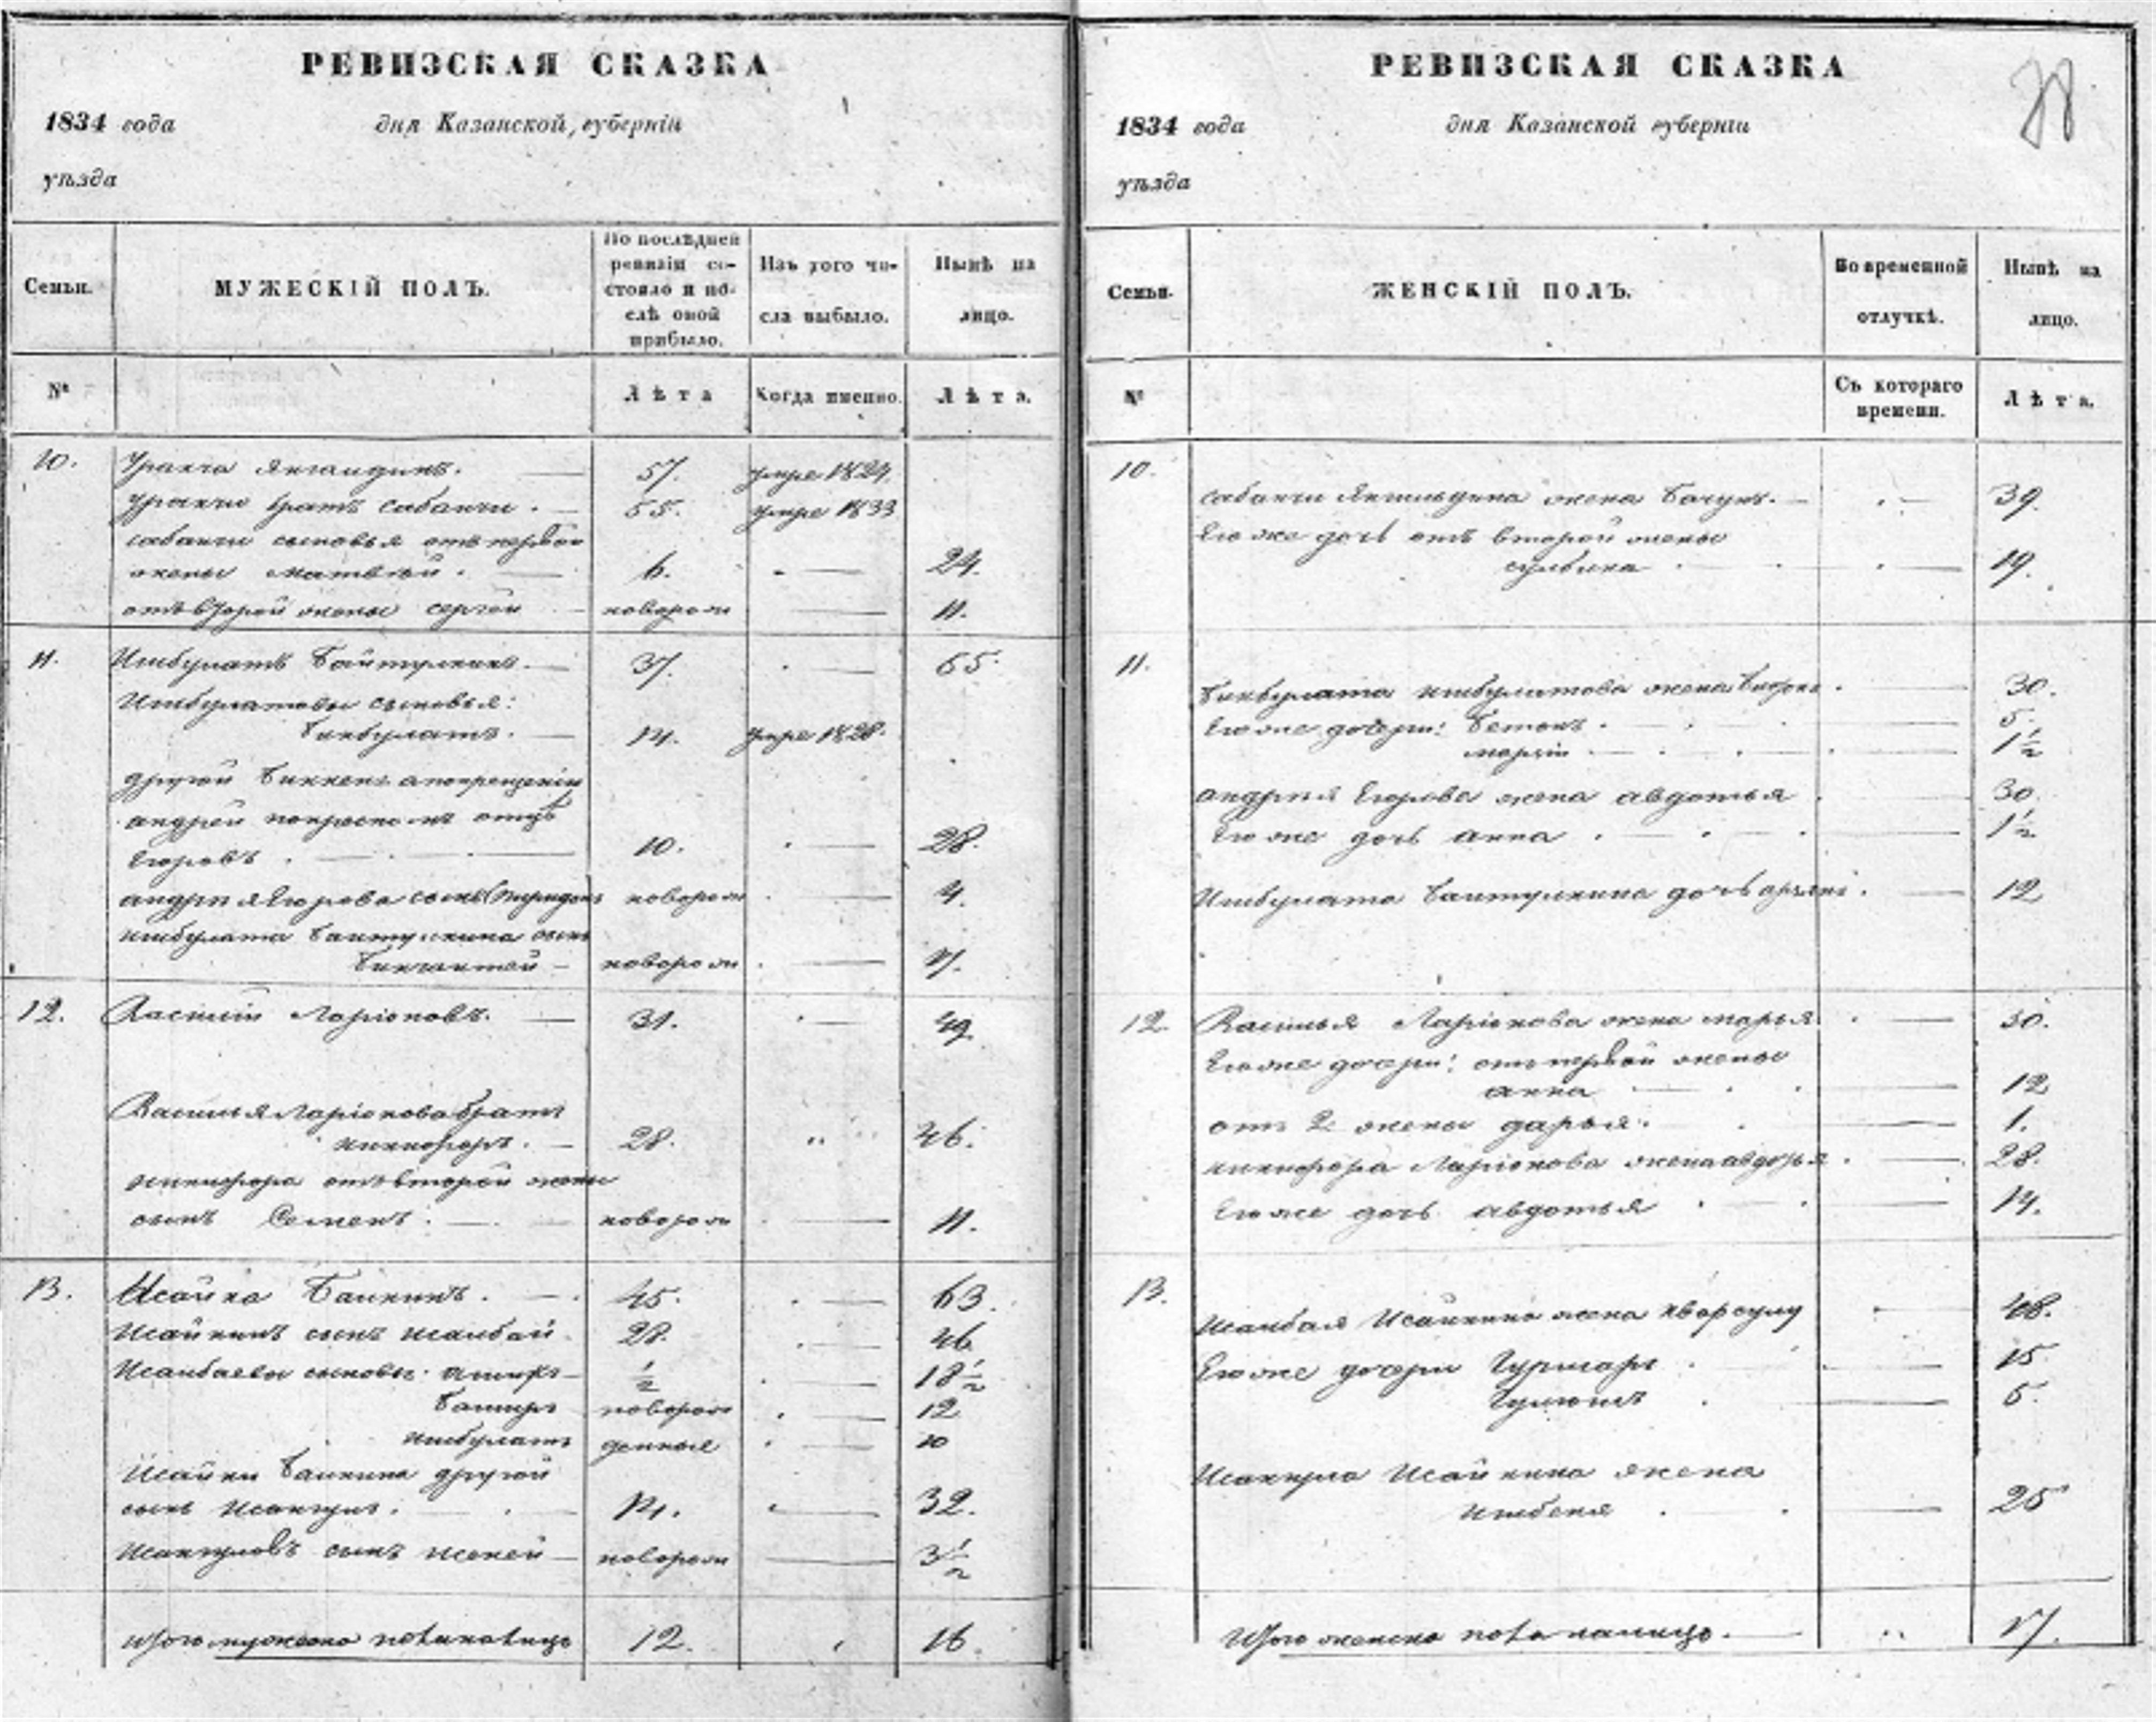 РЕВИЗСКАЯ СКАЗКА
1834 года дня Казанской губерніи
уѣзда
Семьи.
МУЖЕСКІЙ ПОЛЪ.
По послѣдней
ревизіи со-
стояло и по-
слѣ оной
прибыло.
Изъ того чи-
сла выбыло.
Нынѣ на
лицо.
№
Лѣта
Когда именно.
Лѣта.
10. 57. умре 1824.
братъ Сабанчи. 55. умре 1833
Сабанчи сыновья отъ первой
жены Матвѣй. 6. 24.
отъ второй жены Сергѣй новорож 11.
11. Ишбулатъ Байтулкинъ. 37. 55.
Ишбулатовы сыновья:
Бикбулатъ. 14. умре 1828.
другой Биккенъ а по крещеніи
Андрей по крестномъ отцѣ
Егоровъ. 10. 28.
Андрея Егорова сынъ Спиридонъ новорож 4.
Ишбулата Байтулкина сынъ
новорож
12. Василій Ларіоновъ. 31. 49
Василья Ларіонова братъ
Никифоръ. 28. 46.
Никифора отъ второй жены
сынъ Семенъ. новорож 11.
13. Исайка Баикинъ. 45. 63.
Исайкинъ сынъ Исанбай 28. 46
Исанбаевы сыновья ½ 18½
новорож 12
Ишбулатъ денные 10
Исайки Баикина другой
сынъ Исангулъ. 14. 32.
Исангуловъ сынъ новорож 3½
Итого мужеска пола налицо 12. 16.
РЕВИЗСКАЯ СКАЗКА
78
1834 года дня Казанской губерніи
уѣзда
Семьи.
ЖЕНСКІЙ ПОЛЪ.
Во временной
отлучкѣ.
Нынѣ на
лицо.
№
Съ котораго
времени.
Лѣта.
10.
Сабанчи жена 39.
Его же дочь отъ второй жены
19.
11.
Бикбулата Ишбулатова жена 30.
Его же дочери: 5.
1½
Андрея Егорова жена Авдотья 30.
Его же дочь Анна 1½
Ишбулата Байтулкина дочь 12
12. Василья Ларіонова жена Марья 30.
Его же дочери: отъ первой жены
Анна 12
отъ 2 жены Дарья. 1.
Никифора Ларіонова жена 28.
Его же дочь Авдотья 14.
13.
Исанбая Исайкина жена 48.
Его же дочери 15
5.
Исангула Исайкина жена
25
Итого женска пола налицо. 17.